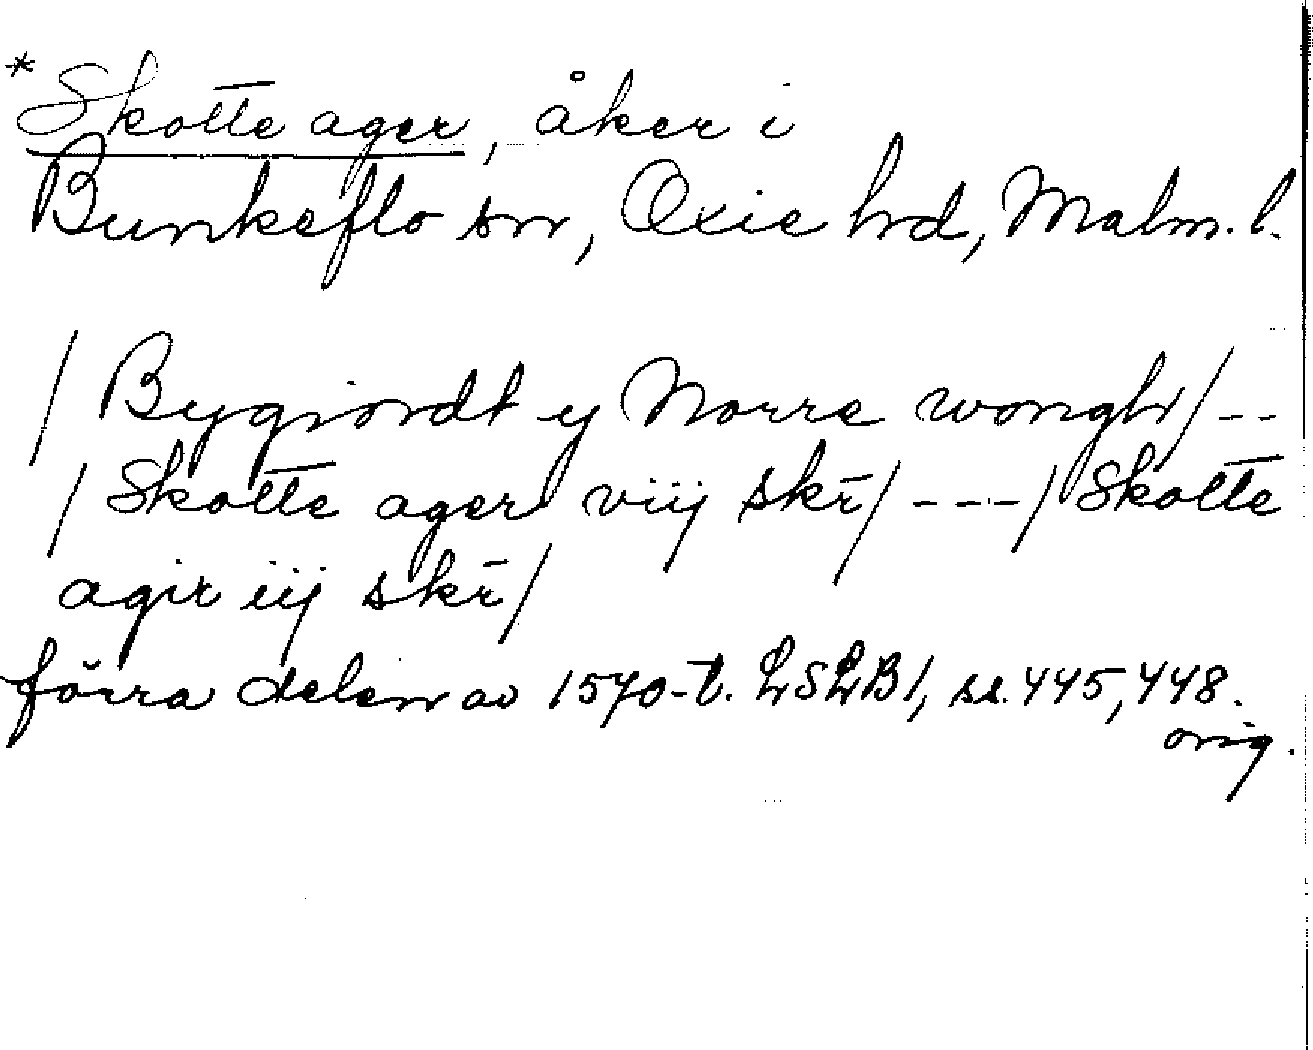 *Skotte ager, åker i
Bunkeflo sn, Oxie hd, Malm. l.
/ Bygiordt y Norre wongh/ --
/ Skotte ager viij skr̄/ ---/ Skotte
agir iij skr̄/
förra delen av 1570-t. LSLB1, ss. 445, 448.
orig.